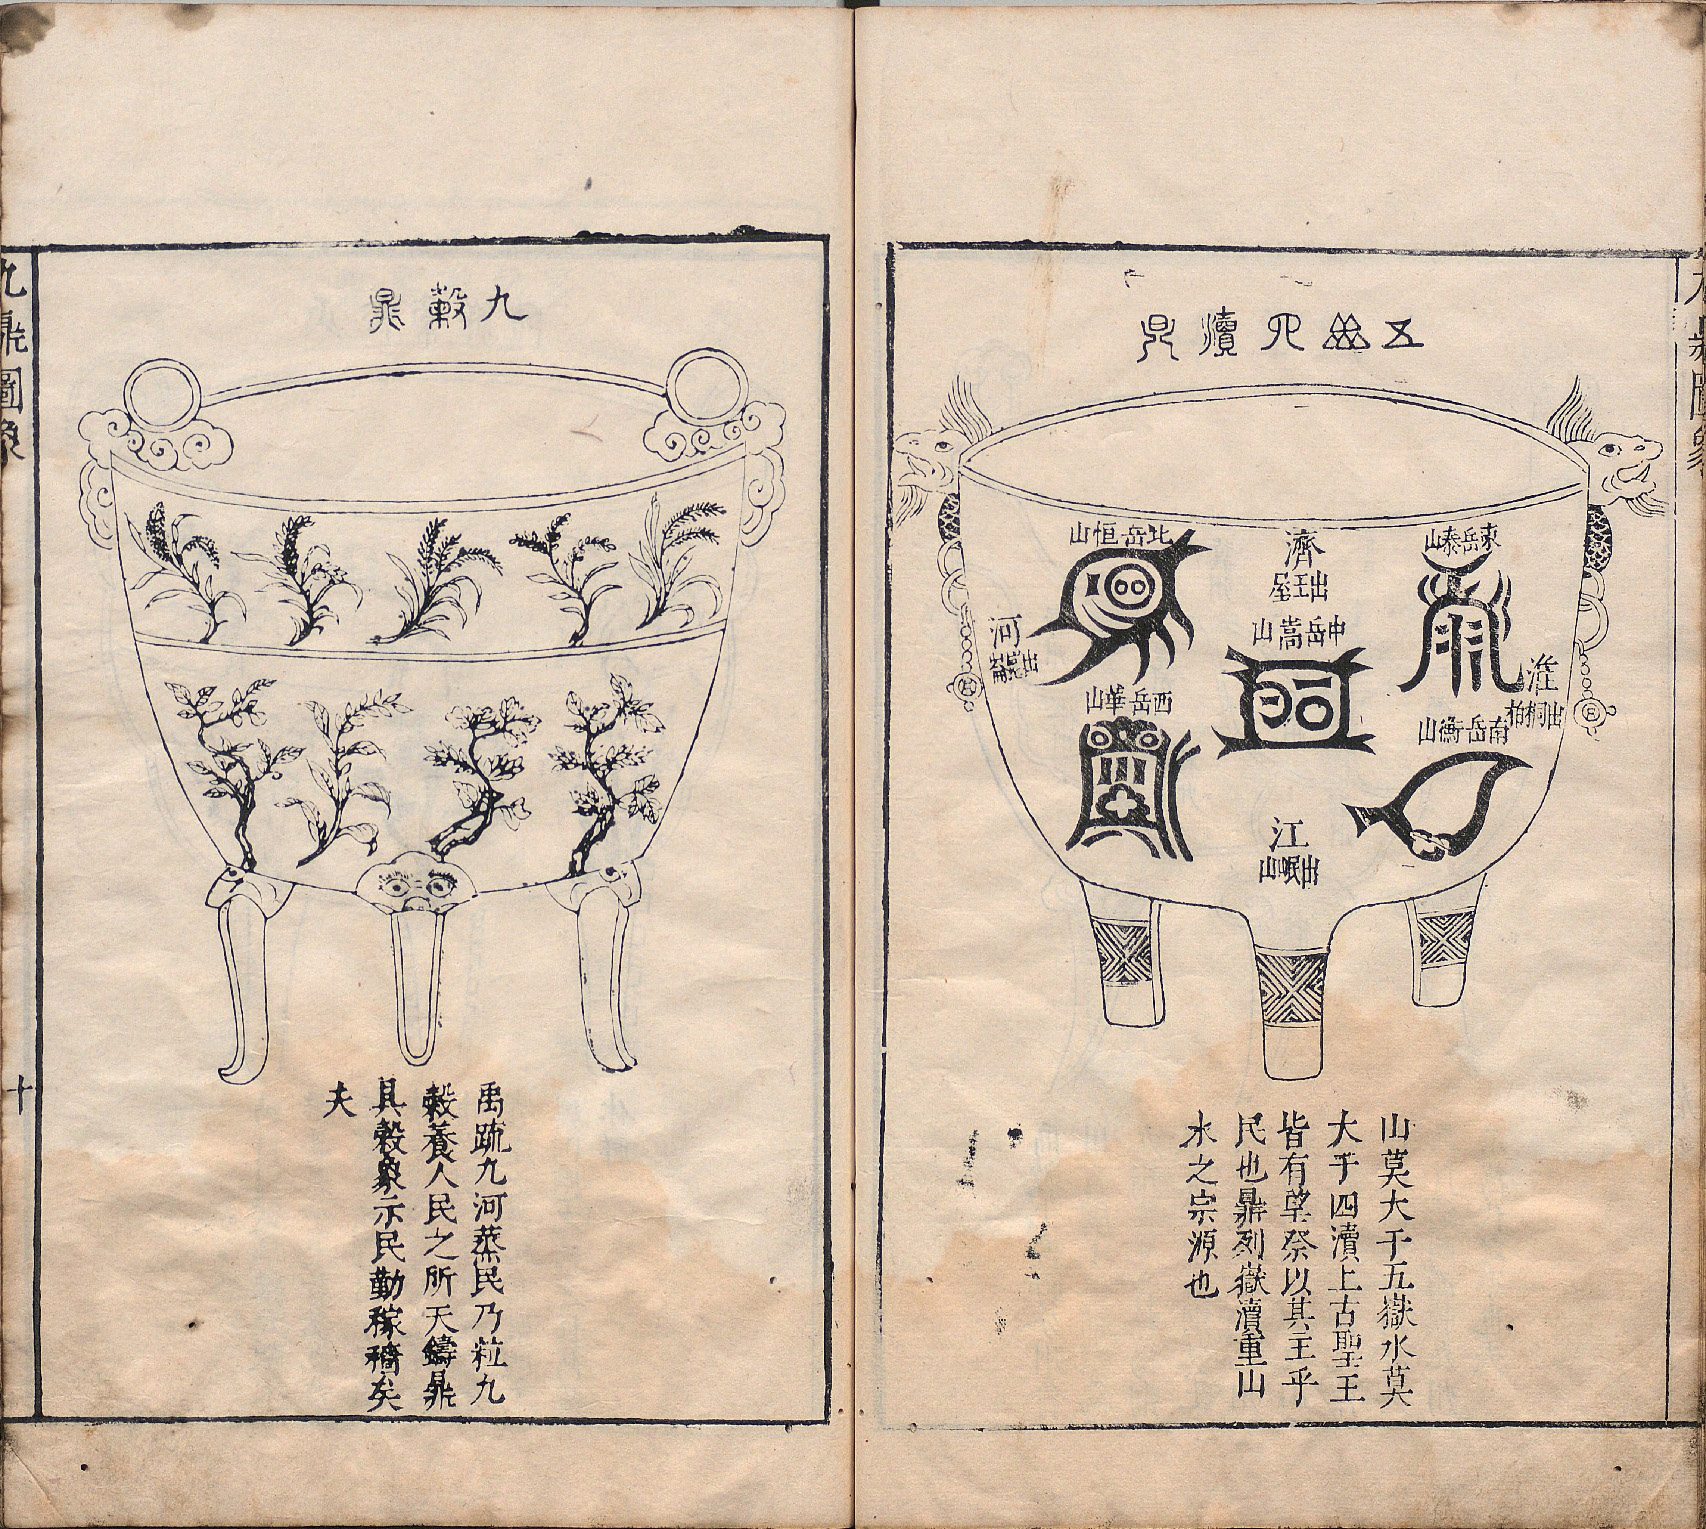 五岳四瀆鼎
東岳泰山
北岳恒山
濟
出王屋
中岳嵩山
河
出崑崙
淮
出桐柏
西岳華山
南岳衡山
江
出岷山
山莫大于五嶽水莫
大于四瀆上古聖王
皆有望祭以其主乎
民也鼎列嶽瀆重山
水之宗源也
九穀鼎
禹疏九河蒸民乃粒九
穀養人民之所天鑄鼎
具穀象示民勤稼穡矣
夫
九鼎圖象
十